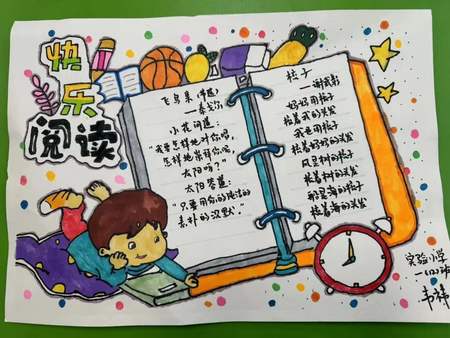 快乐
阅读
飞鸟集(节选)
——泰戈尔
小花问道:
"我要怎样地对你唱,
怎样地崇拜你呢,
太阳呀?"
太阳答道:
"只要用你的纯洁的
素朴的沉默."
梳子
——谢武彰
妈妈用梳子
梳着我的头发
我也用梳子
梳着妈妈的头发
风是树的梳子
梳着树的头发
船是海的梳子
梳着海的头发
实验小学
一(12)班